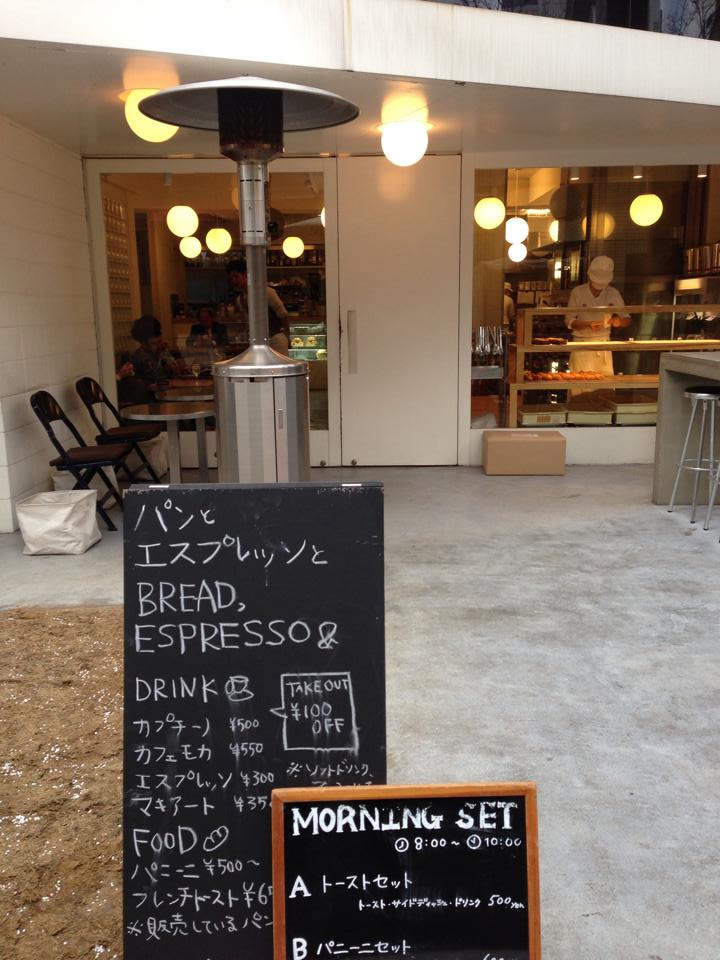 パンと
エスプレッソと
BREAD,
ESPRESSO &
DRINK
TAKE OUT
¥100
OFF
カプチーノ ¥500
カフェモカ ¥550
エスプレッソ ¥300
マキアート ¥35
※ソフトドリンク、
FOOD
パニーニ ¥500〜
フレンチトースト ¥6
※販売しているパン
MORNING SET
8:00〜 10:00
A トーストセット
トースト・サイドディッシュ・ドリンク 500yen
B パニーニセット